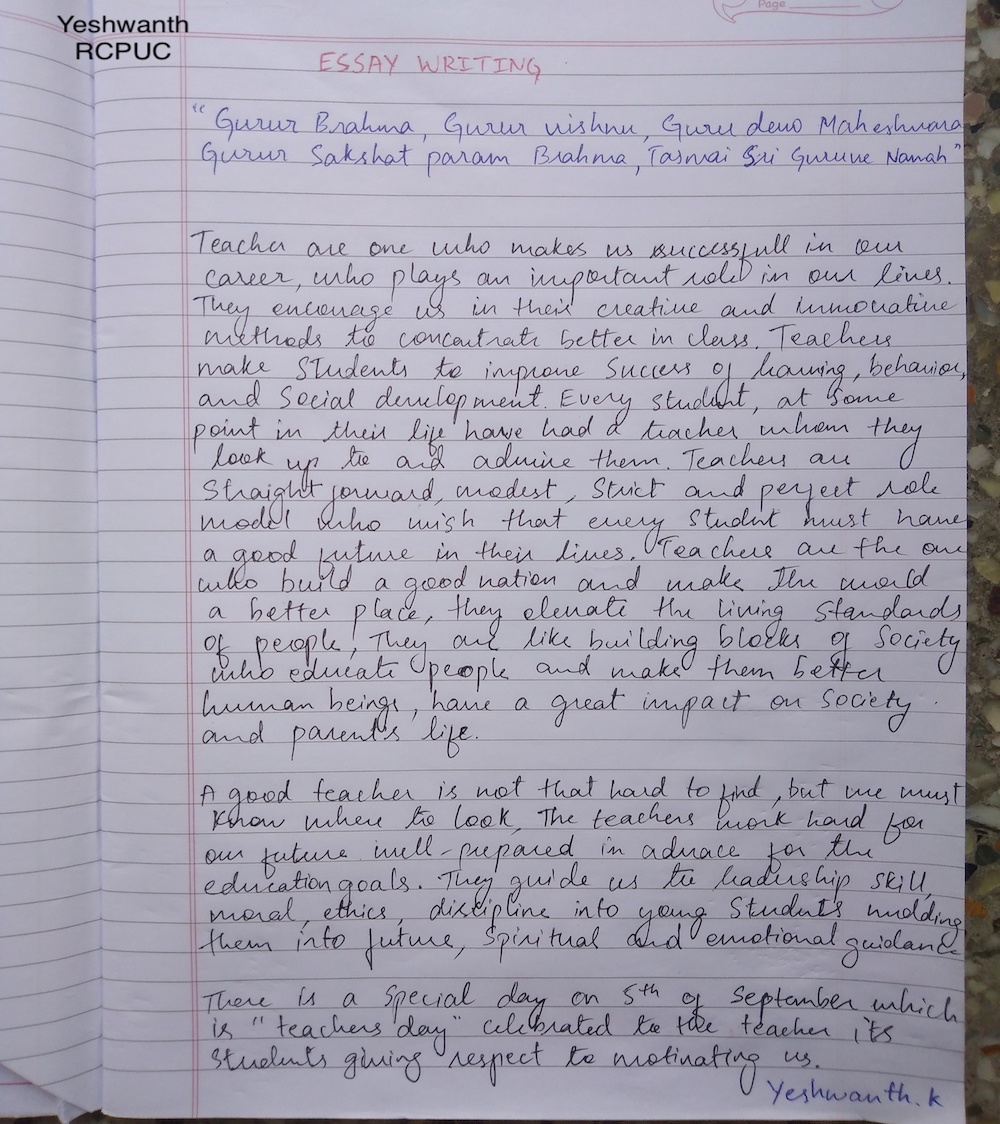 Page
Yeshwanth
RCPUC
ESSAY WRITING
"Gurur Brahma, Gurur vishnu, Guru devo Maheshwara
Gurur Sakshat param Brahma, Tasmai Sri Guruve Namah"
Teacher are one who makes us successfull in our
career, who plays an important role in our lives.
They encourage us in their creative and innnovative
methods to concentrate better in class. Teachers
make Students to improve Success of learning, behavior,
and Social development. Every student, at some
point in their life have had a teacher whom they
look up to and admire them. Teachers are
Straight forward, modest, Strict and perfect role
model who wish that every Student must have
a good future in their lives. Teachers are the one
who build a good nation and make the world
a better place, they elevate the living Standards
of people, They are like building blocks of Society
who educate people and make them better
human beings, have a great impact on Society
and parent's life.
A good teacher is not that hard to find, but we must
Know where to look, The teachers work hard for
our future well-prepared in advace for the
education goals. They guide us to leadership skill,
moral, ethics, discipline into young Students molding
them into future, Spiritual and emotional guidance
There is a Special day on 5th of September which
is "teachers day" celebrated to the teacher its
Students giving respect to motivating us.
Yeshwanth.k